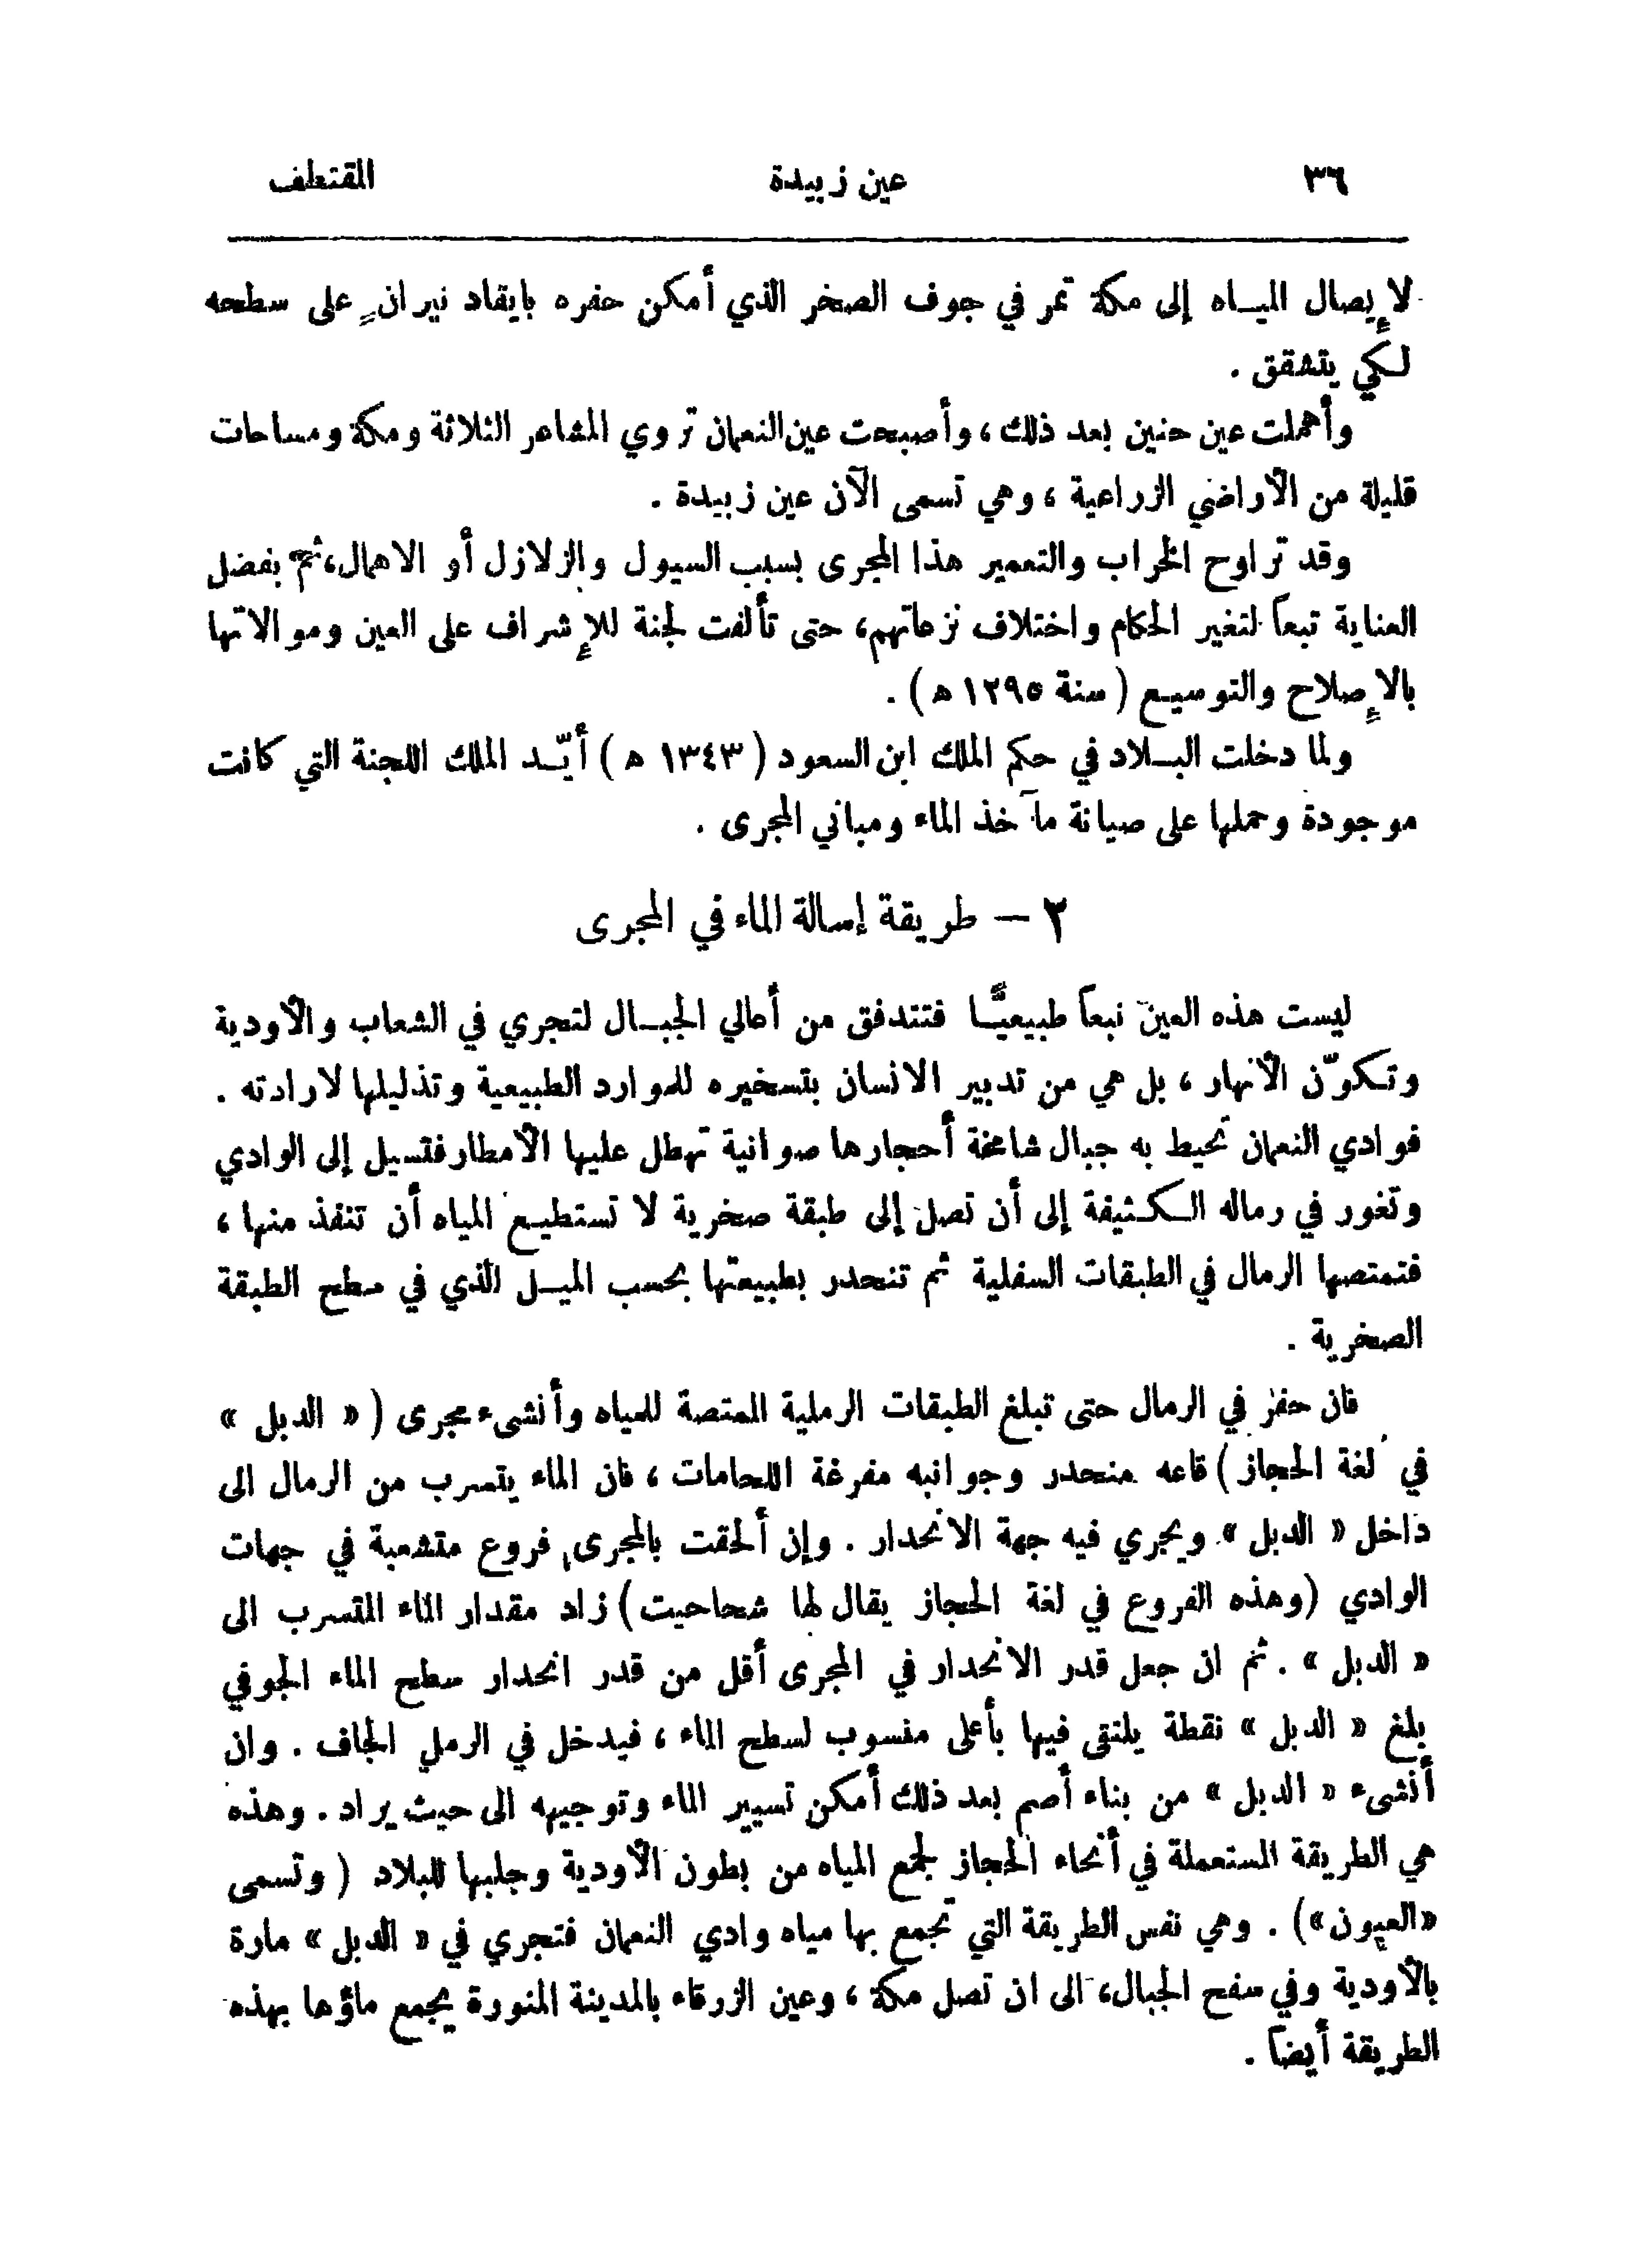 ٣٦ عين زبيدة المقتطف
لإيصال الميـاه إلى مكة تمر في جوف الصخر الذي أمكن حفره بايقاد نيرانٍ على سطحه
لكي يتشقق .
وأهملت عين حنين بعد ذلك ، وأصبحت عين النعمان تروي المشاعر الثلاثة ومكة ومساحات
قليلة من الأراضي الزراعية ، وهي تسمى الآن عين زبيدة .
وقد تراوح الخراب والتعمير هذا المجرى بسبب السيول والزلازل أو الاهمال، ثمَّ بفضل
العناية تبعاً لتغير الحكام واختلاف نزعاتهم، حتى تألفت لجنة للإشراف على العين وموالاتها
بالإصلاح والتوسيع ( سنة ١٢٩٥ ه ) .
ولما دخلت البـلاد في حكم الملك ابن السعود ( ١٣٤٣ ه ) أيّـد الملك اللجنة التي كانت
موجودة وحملها على صيانة مآخذ الماء ومباني المجرى .
٢ — طريقة إسالة الماء في المجرى
ليست هذه العين نبعاً طبيعيًّـا فتتدفق من أعالي الجبـال لتجري في الشعاب والأودية
وتكوّن الأنهار ، بل هي من تدبير الانسان بتسخيره للموارد الطبيعية وتذليلها لارادته .
فوادي النعمان تحيط به جبال شامخة أحجارها صوانية تهطل عليها الأمطار فتسيل إلى الوادي
وتغور في رماله الكثيفة إلى أن تصل إلى طبقة صخرية لا تستطيع المياه أن تنفذ منها ،
فتمتصها الرمال في الطبقات السفلية ثم تنحدر بطبيعتها بحسب الميـل الذي في سطح الطبقة
الصخرية .
فان حفر في الرمال حتى تبلغ الطبقات الرملية الممتصة للمياه وأنشىء مجرى ( « الدبل »
في لغة الحجاز ) قاعه منحدر وجوانبه مفرغة اللحامات ، فان الماء يتسرب من الرمال الى
داخل « الدبل » ويجري فيه جهة الانحدار . وإن ألحقت بالمجرى فروع متشعبة في جهات
الوادي (وهذه الفروع في لغة الحجاز يقال لها شحاحيت) زاد مقدار الماء المتسرب الى
« الدبل » . ثم ان جعل قدر الانحدار في المجرى أقل من قدر انحدار سطح الماء الجوفي
بلغ « الدبل » نقطة يلتقى فيها بأعلى منسوب لسطح الماء ، فيدخل في الرمل الجاف . وان
أنشىء « الدبل » من بناء أصم بعد ذلك أمكن تسيير الماء وتوجيهه الى حيث يراد . وهذه
هي الطريقة المستعملة في أنحاء الحجاز لجمع المياه من بطون الأودية وجلبها للبلاد ( وتسمى
«العيون») . وهي نفس الطريقة التي تجمع بها مياه وادي النعمان فتجري في « الدبل » مارة
بالأودية وفي سفح الجبال، الى ان تصل مكة ، وعين الزرقاء بالمدينة المنورة يجمع ماؤها بهذه
الطريقة أيضاً .